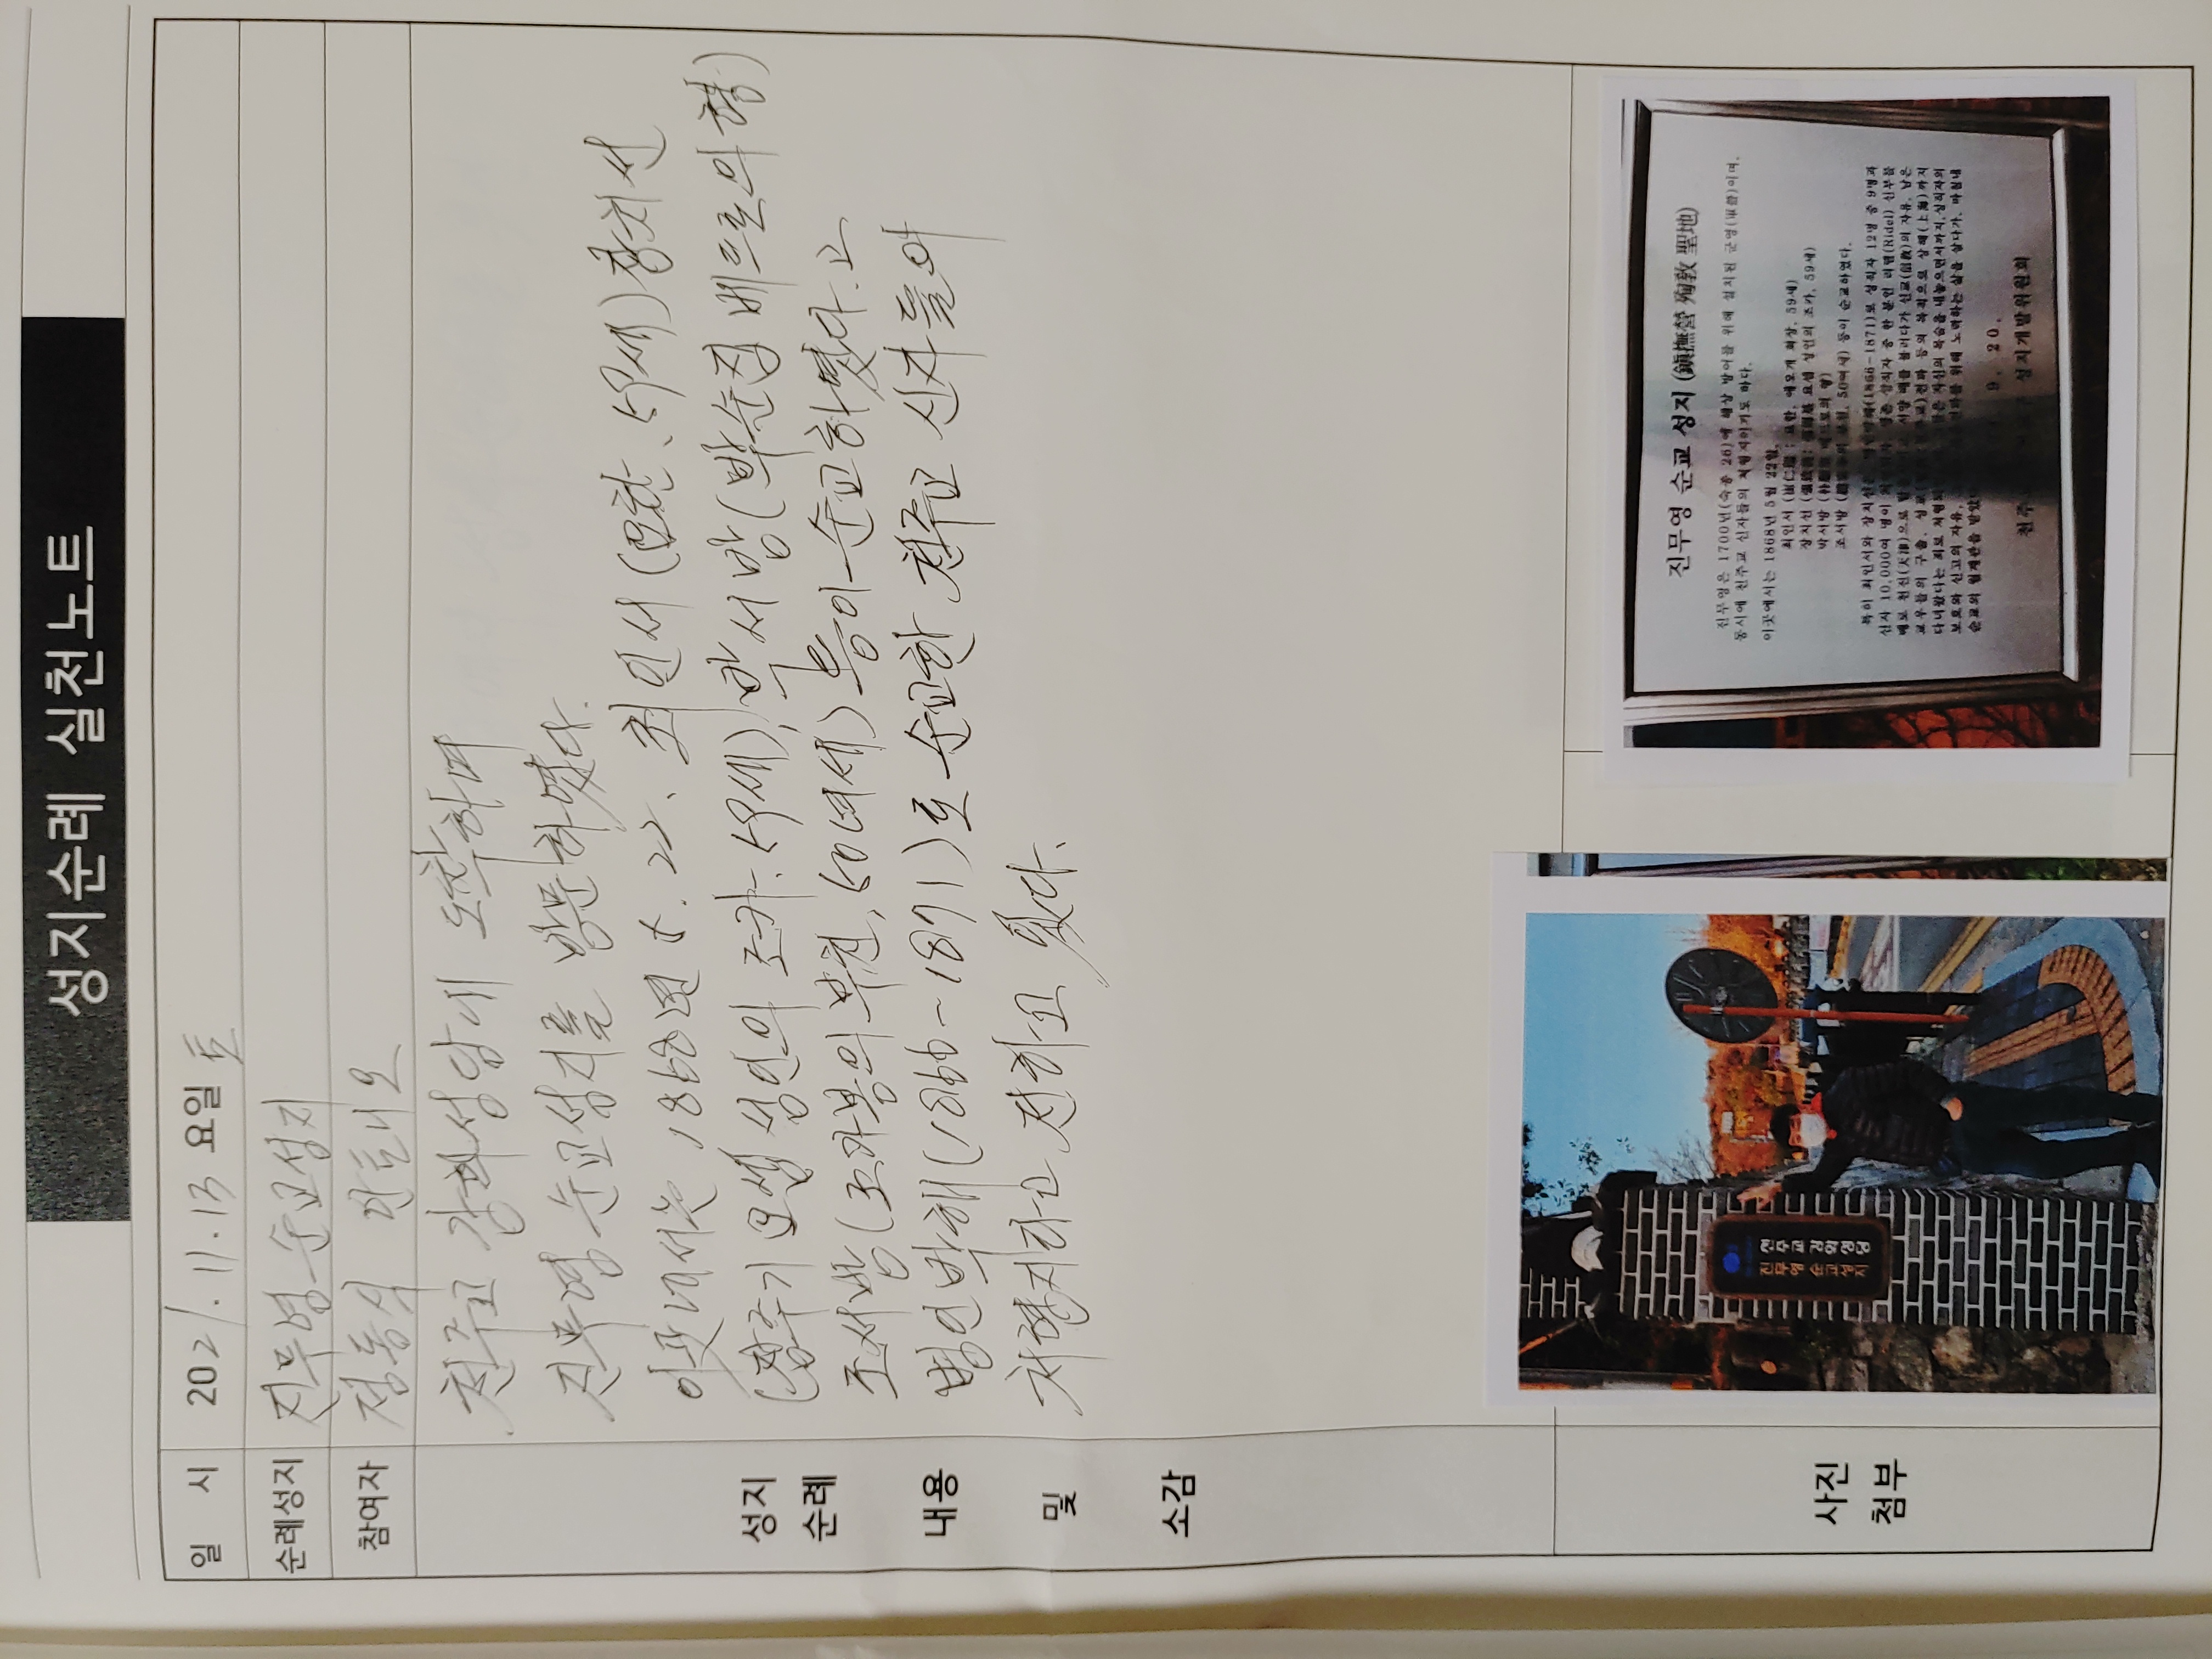 성지순례 실천노트
일 시 2021. 11. 13 요일 토
순례성지 진무영 순교성지
참여자 정동식 안토니오
성지
순례
내용
및
소감
천주교 강화성당에 도착하며
진무영 순교성지를 방문하였다.
이곳에서는 1868년 5. 22. 최인서 (요한, 59세) 장치선
(장주기 요셉 성인의 조카, 59세), 박서방 (박순집 베드로의 형)
조서방 (조가봉의 부친, 50여세) 등이 순교하였다.고
병인박해 (1866-1871)로 순교한 천주교 신자들의
처형지라고 전하고 있다.
사진
첨부
천주교 강화성당
진무영 순교성지
진무영 순교 성지 (鎭撫營 殉敎 聖地)
진무영은 1700년(숙종 26)에 해상 방어를 위해 설치된 군영(軍營)이며,
동시에 천주교 신자들의 처형지이기도 하다.
이곳에서는 1868년 5월 22일,
최인서 (崔仁瑞 : 요한, 애오개 회장, 59세)
장치선 ( 요셉 성인의 조카, 59세)
박서방 ( 베드로의 형)
조서방 ( 부친, 50여세) 등이 순교하였다.
특히 최인서와 장치선은, 병인박해(1866-1871)로 성직자 12명 중 9명과
신자 10,000여 명이 생존 성직자 중 한 분인 리델(Ridel) 신부를
배로 천진(天津)으로 서양 배를 불러다가 신교(信敎)의 자유, 남은
교우들의 구출, 성교( )전파 등의 목적으로 상해(上海)까지
다녀왔다는 죄로 처형되 자신의 목숨을 내놓으면서까지, 성직자의
보호와 신교의 자유, 위해 노력하는 삶을 살다가, 마침내
순교의 월계관을 받았다
9. 20.
천주교 성지개발위원회